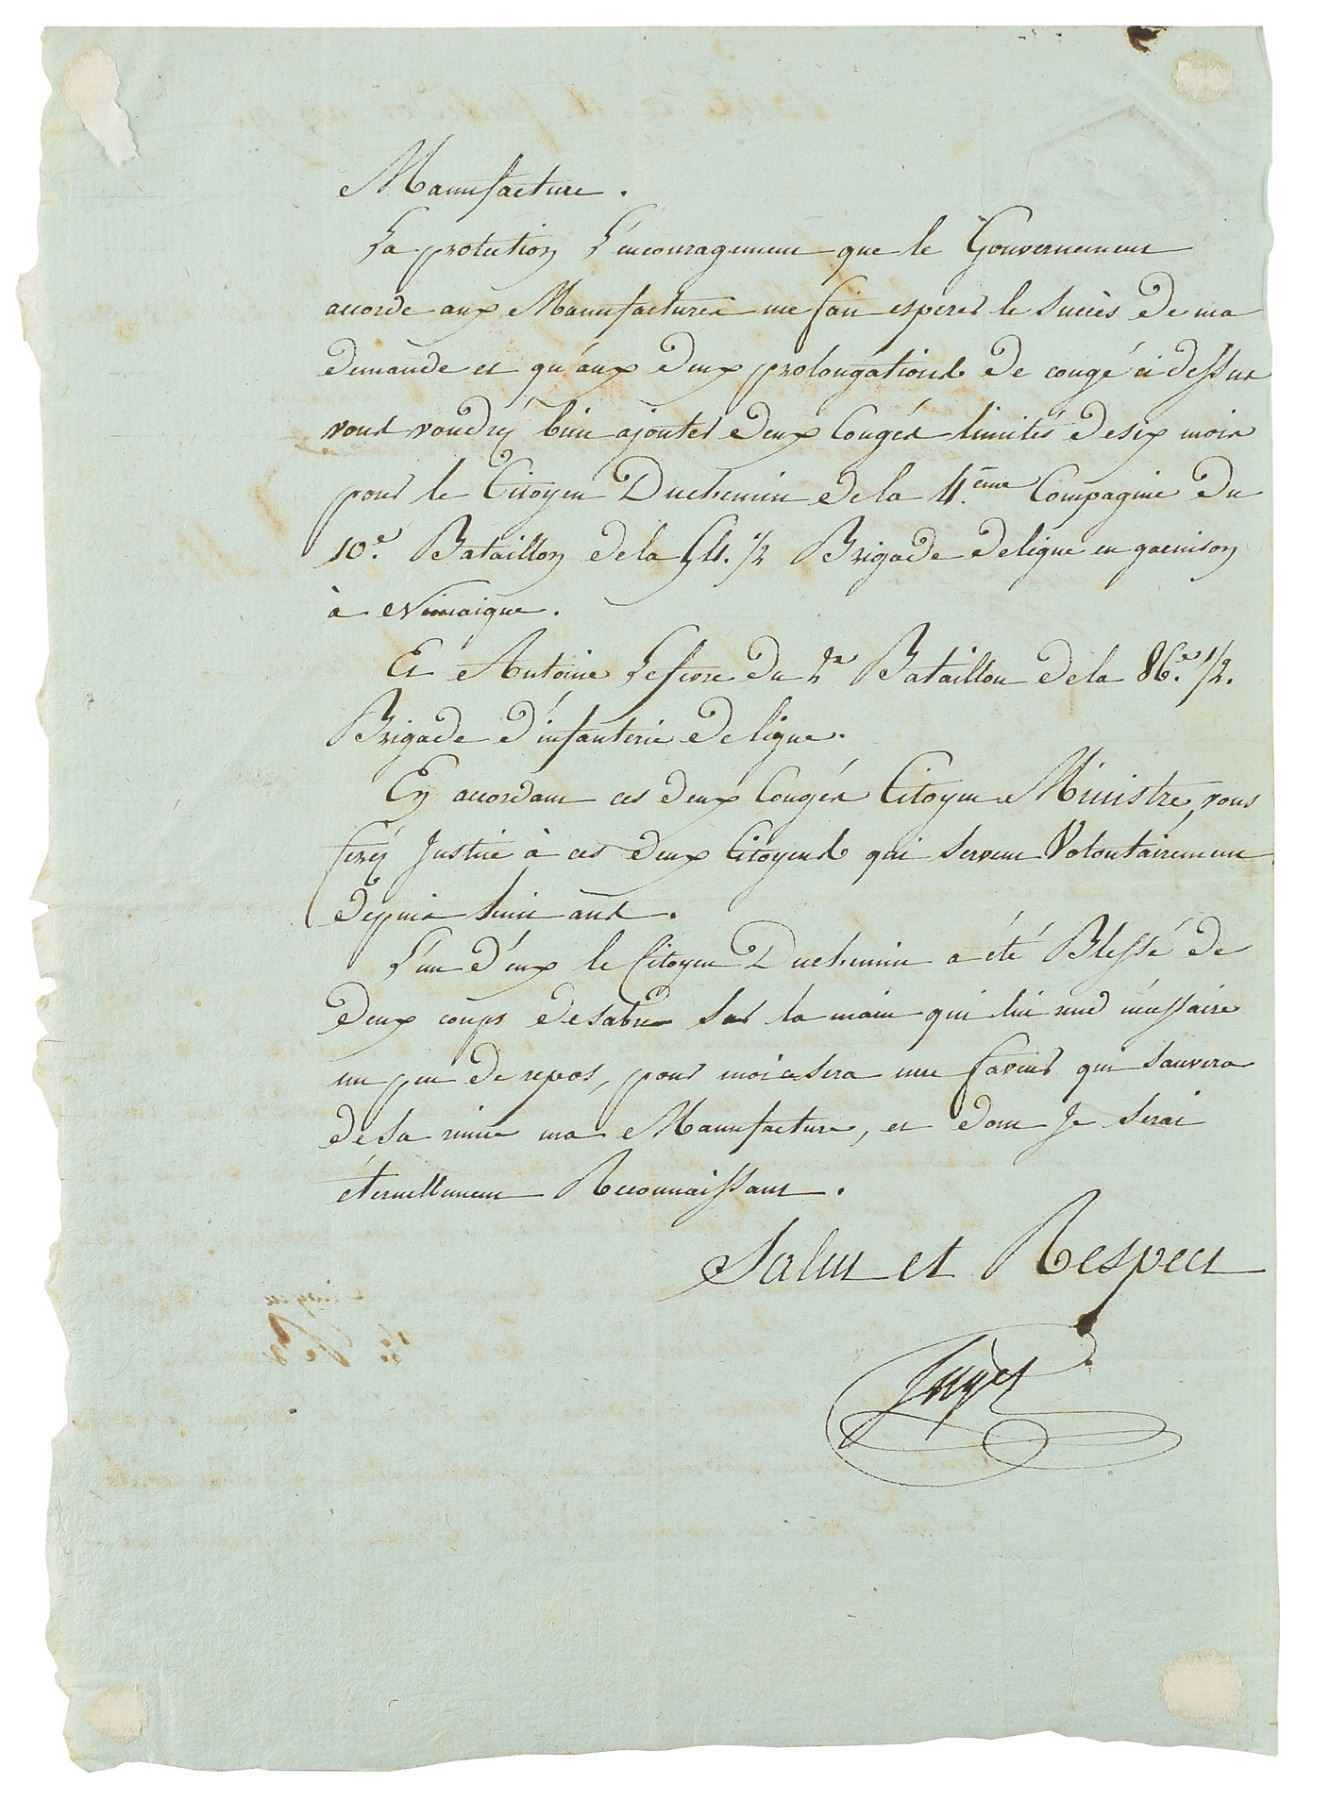 Manufacture.
La protection l'encouragement que le Gouvernement
accorde aux Manufactures me fait esperer le Succès de ma
demande et qu'aux deux prolongations de congé ci dessus
vous voudréz bien ajouter deux Congés limités de six mois
pour le Citoyen Duchemin de la 4.eme Compagnie du
10e. Bataillon de la 54. 1/2 Brigade de ligne en garnison
à Nimaigue.
Et Antoine Lefevre du 2e Bataillon de la 86.e 1/2.
Brigade d'infanterie de ligne.
En accordant ces deux Congés Citoyen Ministre, vous
feréz Justice à ces deux Citoyens qui servent Volontairement
depuis huit ans.
L'un d'eux le Citoyen Duchemin a été Blessé de
deux coups de sabre sur la main qui lui rend nécessaire
un peu de repos, pour moi ce sera une faveur qui sauvera
de sa ruine ma Manufacture, et dont Je serai
éternellement Reconnaissant.
Salut et Respect